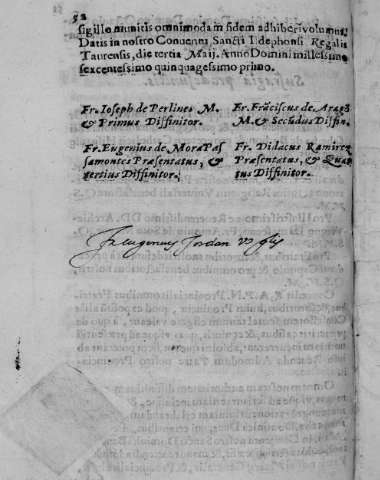 52
sigillo munitis omnimodam fidem adhiberi volumus.
Datis in nostro Conventu Sancti Ildephonsi Regalis
Taurensis, die tertia Maij. Anno Domini millesimo
sexcentessimo quinquagessimo primo.
Fr. Ioseph de Perlines M.
& Primus Diffinitor.
Fr. Frāciscus de Aragō
M. & Secūdus Diffin.
Fr. Eugenius de Mora Pas
samontes Præsentatus, &
tertius Diffinitor.
Fr. Didacus Ramirez
Præsentatus, & Quar
tus Diffinitor.
Jordan